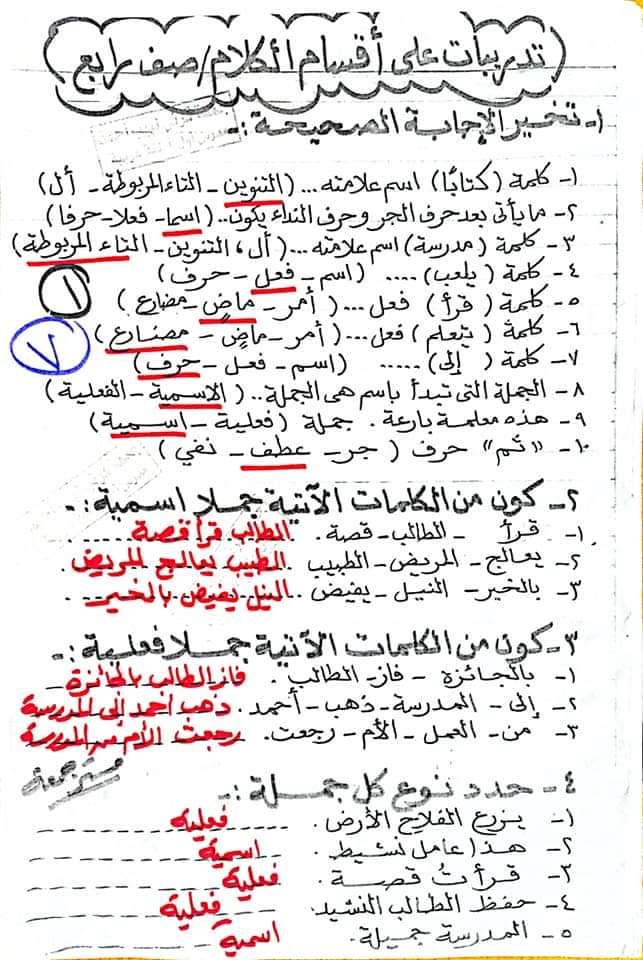 تدريبات على أقسام الكلام/صف رابع
١- تخير الإجابة الصحيحة :-
١- كلمة (كتابًا) اسم علامته... (التنوين - التاء المربوطة - أل)
٢- ما يأتى بعد حرف الجر وحرف النداء يكون.. (اسما - فعلا - حرفا)
٣- كلمة (مدرسة) اسم علامته... (أل، التنوين - التاء المربوطة)
٤- كلمة (يلعب) .... (اسم - فعل - حرف)
١
٥- كلمة (قرأ) فعل... (أمر - ماضٍ - مضارع)
٦- كلمة (يتعلم) فعل... (أمر - ماضٍ - مضارع)
٧
٧- كلمة (إلى) ..... (اسم - فعل - حرف)
٨- الجملة التى تبدأ باسم هى الجملة.. (الاسمية - الفعلية)
٩- هذه معلمة بارعة. جملة (فعلية - اسمية)
١٠- "ثم" حرف (جر - عطف - نفي)
٢- كون من الكلمات الآتية جملا اسمية :-
١- قرأ - الطالب - قصة. الطالب قرأ قصة
٢- يعالج - المريض - الطبيب الطبيب يعالج المريض
٣- بالخير - النيل - يفيض. النيل يفيض بالخير
٣- كون من الكلمات الآتية جملا فعلية :-
١- بالجائزة - فاز - الطالب. فاز الطالب بالجائزة
٢- إلى - المدرسة - ذهب - أحمد. ذهب احمد إلى المدرسة
٣- من - العمل - الأم - رجعت. رجعت الأم من المدرسة
٤- حدد نوع كل جملة :-
١- يزرع الفلاح الأرض. فعلية
٢- هذا عامل نشيط. اسمية
٣- قرأتُ قصة. فعلية
٤- حفظ الطالب النشيد. فعلية
٥- المدرسة جميلة. اسمية